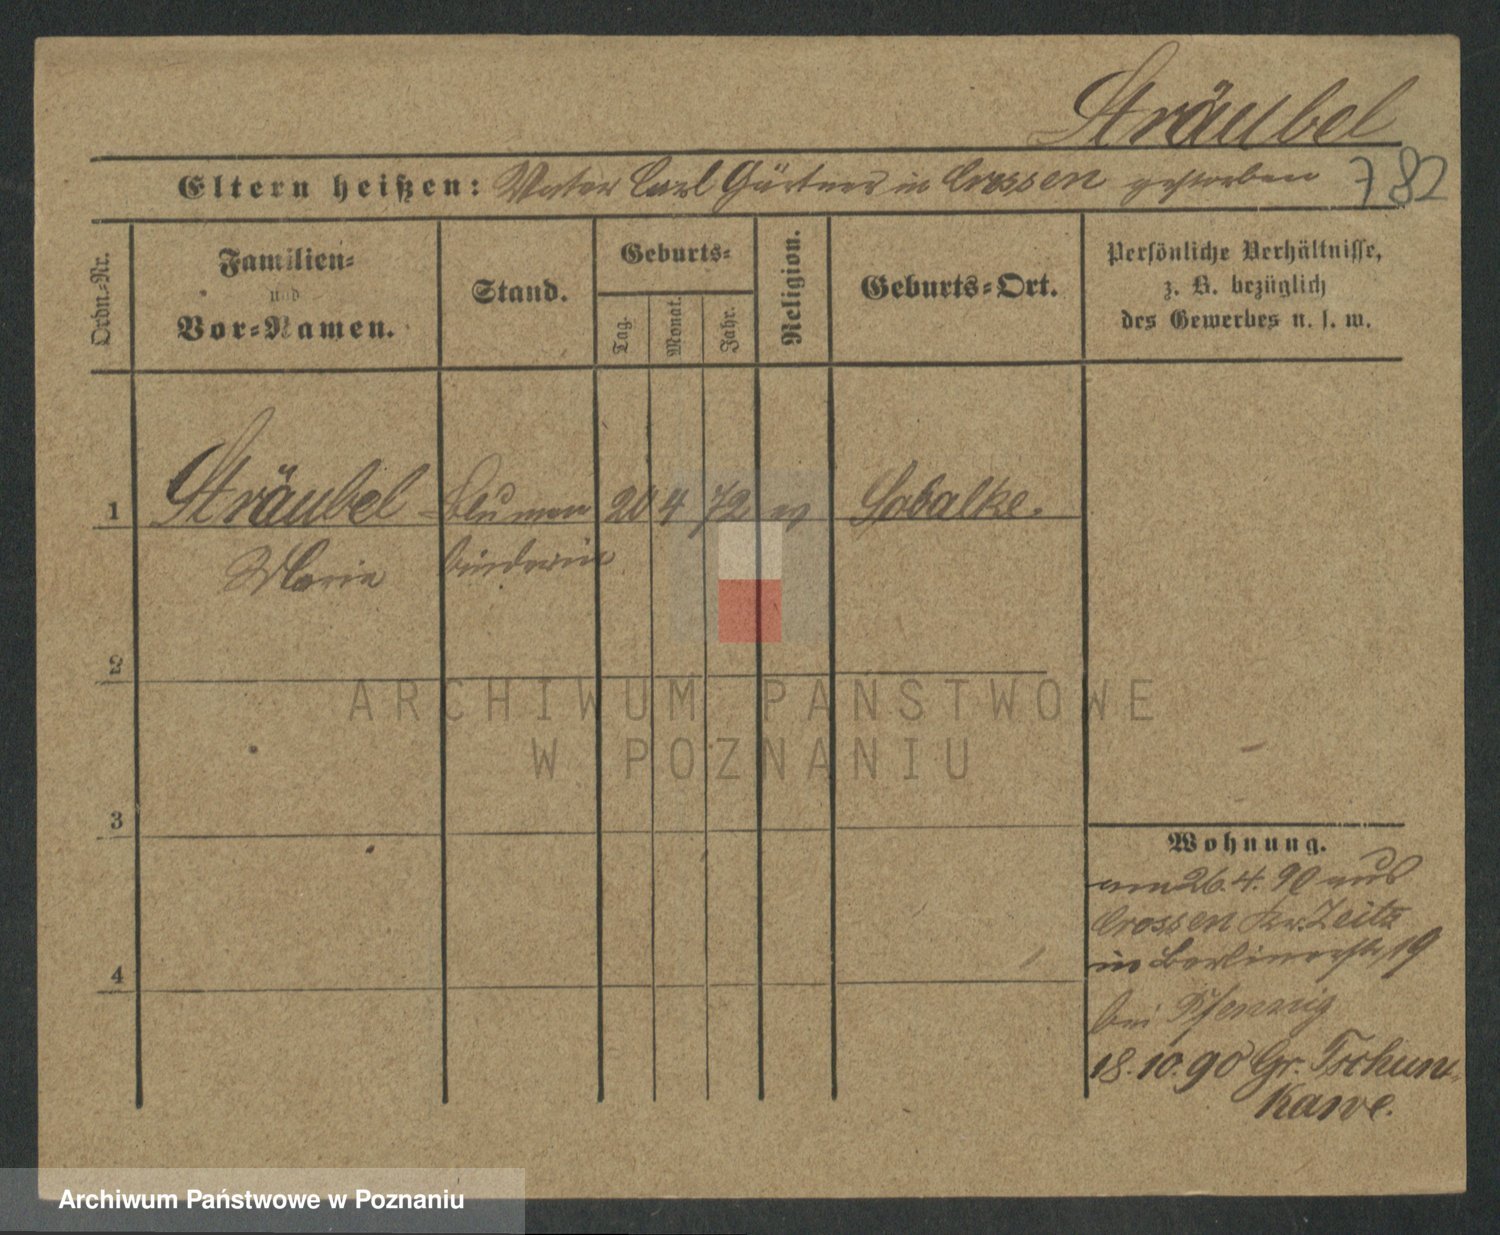 Sträubel
Eltern heißen: Vater Carl Gärtner in Crossen gestorben 782
Ordn.-Nr.
Familien-
und
Vor-Namen.
Stand.
Geburts-
Tag.
Monat.
Jahr.
Religion.
Geburts-Ort.
Persönliche Verhältnisse,
z. B. bezüglich
des Gewerbes u. s. w.
1 Sträubel Blumen 20 4 72 ev Sobalke.
Marie binderin
2
3
4
Wohnung.
am 26.4.90 aus
Crossen Kr. Zeitz
in Berlinerstr. 19
bei Pfennig
18.10.90 Gr. Tschun
kawe.
ARCHIWUM PAŃSTWOWE
W POZNANIU
Archiwum Państwowe w Poznaniu